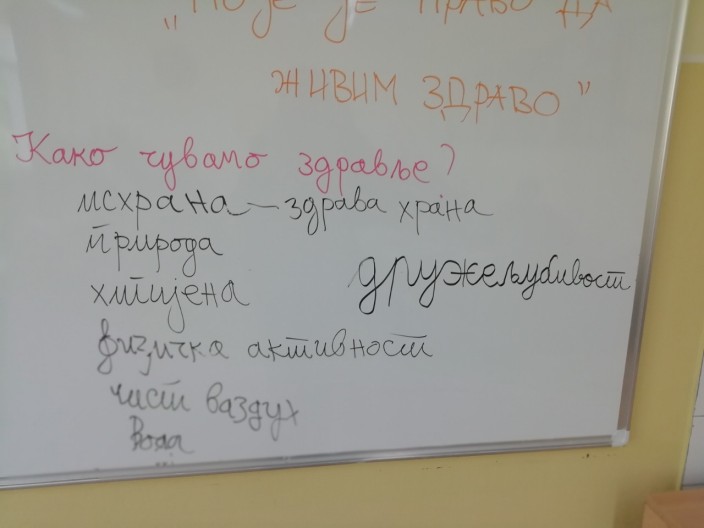 „Моје је ПРАВО ДА
ЖИВИМ ЗДРАВО”
Како чувамо здравље?
исхрана – здрава храна
природа
хигијена
дружељубивост
физичка активност
чист ваздух
вода